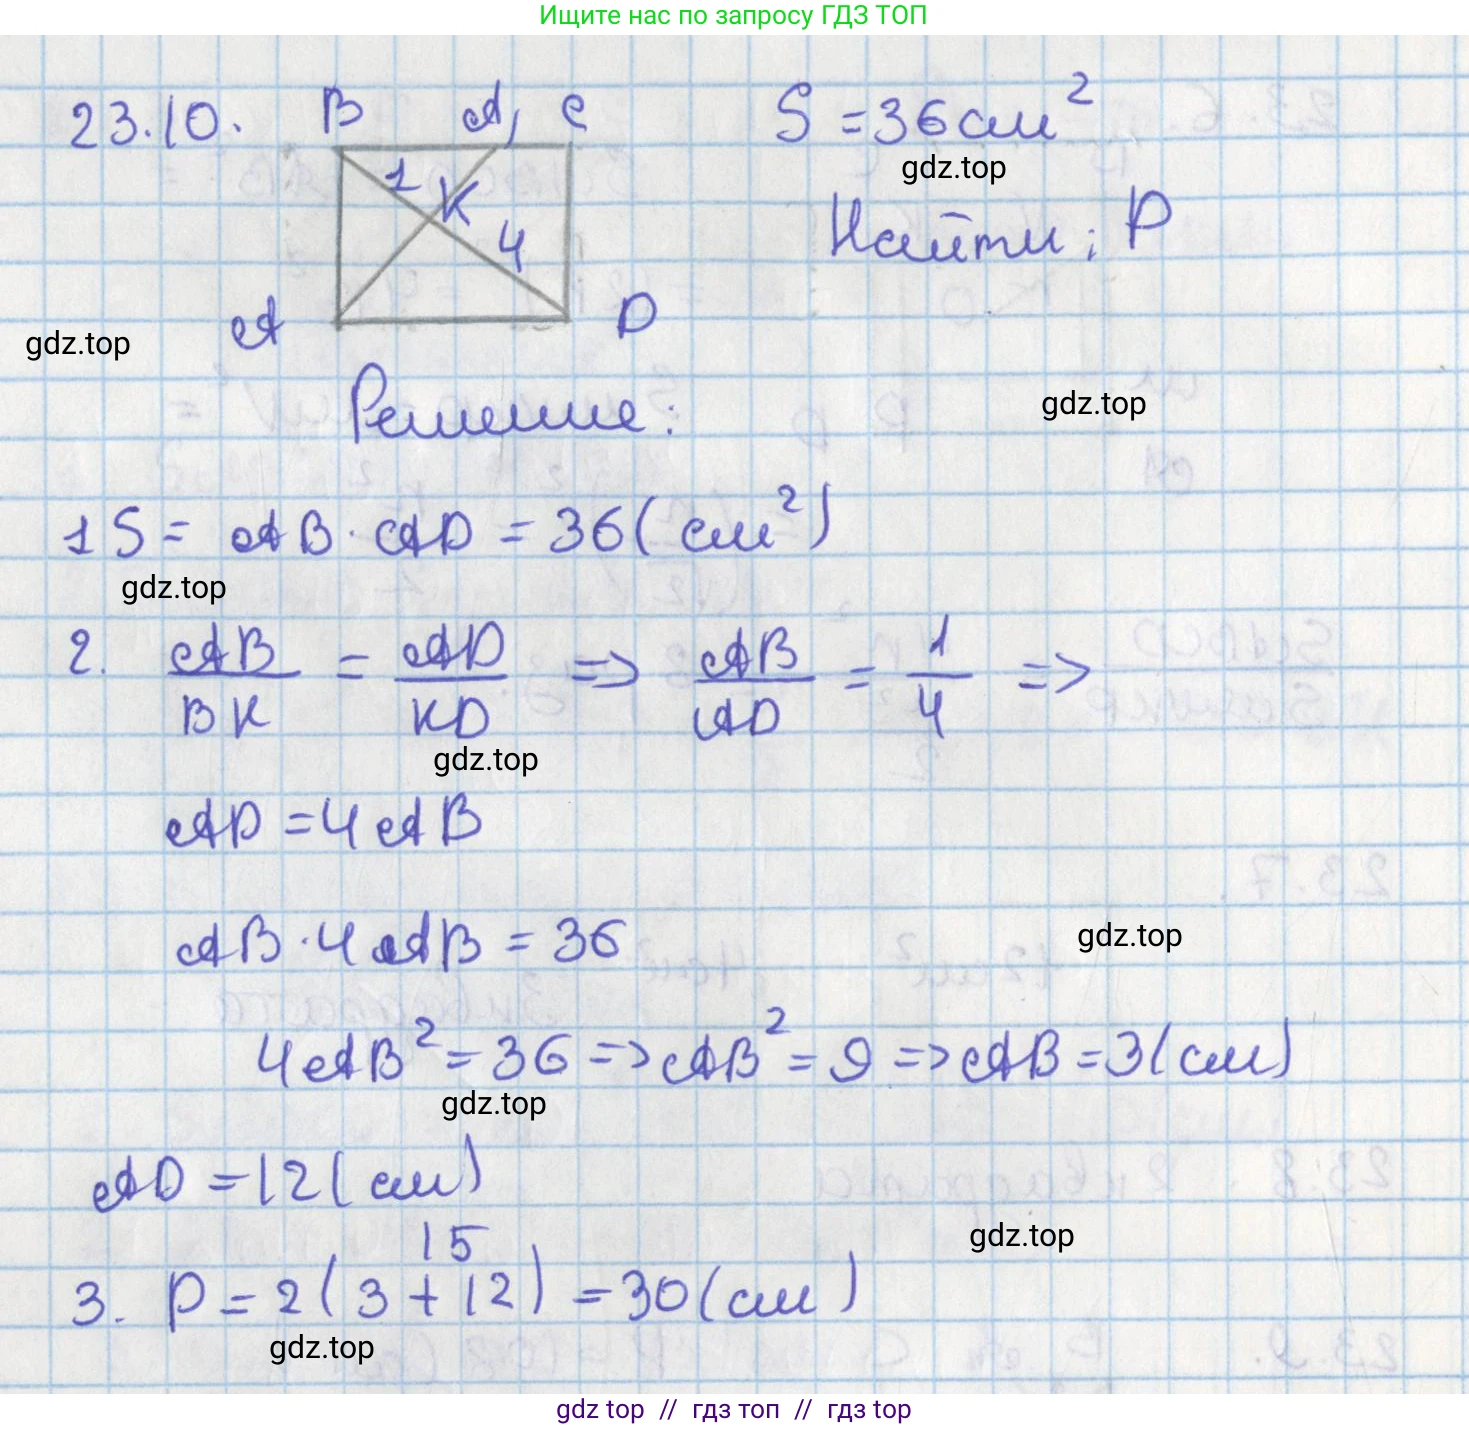 Ищите нас по запросу ГДЗ ТОП
23.10. B A₁ C S = 36 см²
gdz.top
1 K 4 Найти: P
A D
gdz.top
Решение:
gdz.top
1 S = AB · AD = 36 (см²)
gdz.top
2. AB/BK = AD/KD => AB/AD = 1/4 =>
gdz.top
AD = 4 AB
AB · 4 AB = 36
gdz.top
4AB² = 36 => AB² = 9 => AB = 3 (см)
gdz.top
AD = 12 (см)
15
gdz.top
3. P = 2(3 + 12) = 30 (см)
gdz.top
gdz top // гдз топ // гдз top